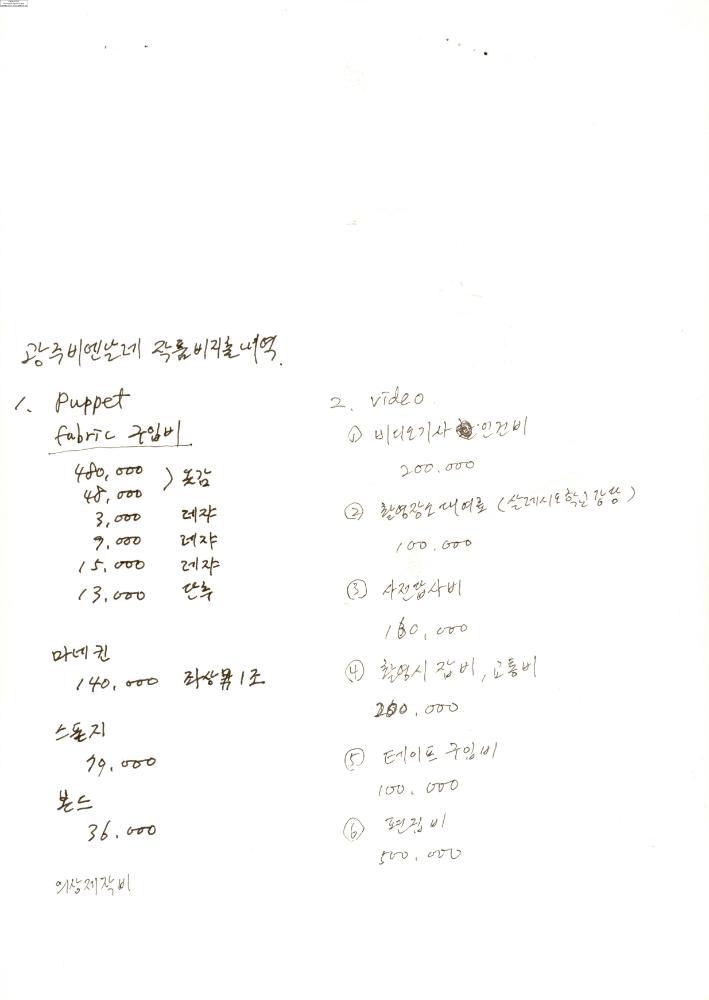 광주비엔날레 작품비지출내역.
1. Puppet
fabric 구입비
480,000
48,000
옷감
3,000 레쟈
9,000 레쟈
15,000 레쟈
13,000 단추
마네킨
140,000 좌상男 1조
스폰지
79,000
본드
36.000
의상제작비
2. video
① 비디오기사 인건비
200.000
② 촬영장소 대여료 (살레시오학교 강당)
100.000
③ 사전답사비
180,000
④ 촬영시 잡비, 교통비
200,000
⑤ 테이프 구입비
100.000
⑥ 편집비
500,000